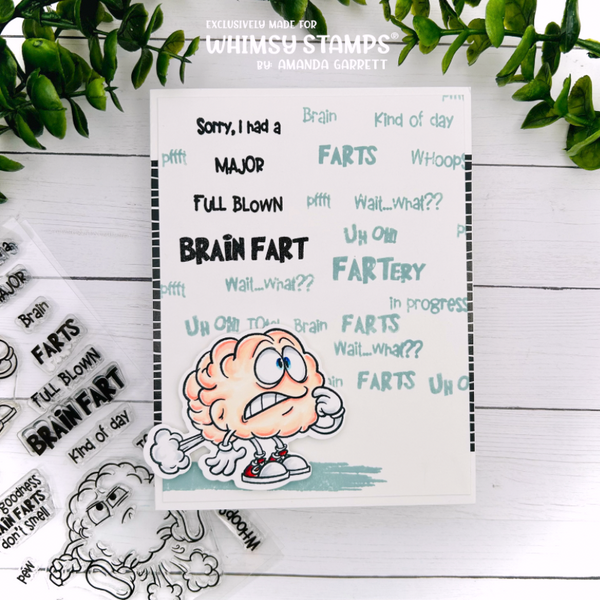 EXCLUSIVELY MADE FOR
WHIMSY STAMPS®
BY: AMANDA GARRETT
Sorry, I had a
MAJOR
FULL BLOWN
BRAIN FART
Brain
Kind of day
pffft
FARTS
WHoops
pffft
Wait...what??
UH OH!
FARTERY
pffft
Wait...what??
in progress
UH OH!
Brain
FARTS
Wait...what??
FARTS
UH O
MAJOR
Brain
FARTS
FULL BLOWN
BRAIN FART
Kind of day
goodness
BRAIN FARTS
don't smell
pew
WHoops